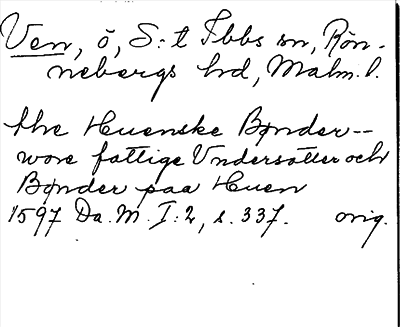 Ven, ö, S:t Ibbs sn, Rön-
nebergs hd, Malm. l.
the Huenske Bønder--
wore fattige Vndersåtter och
Bønder paa Huen
1597 Da. M. I:2, s. 337. orig.